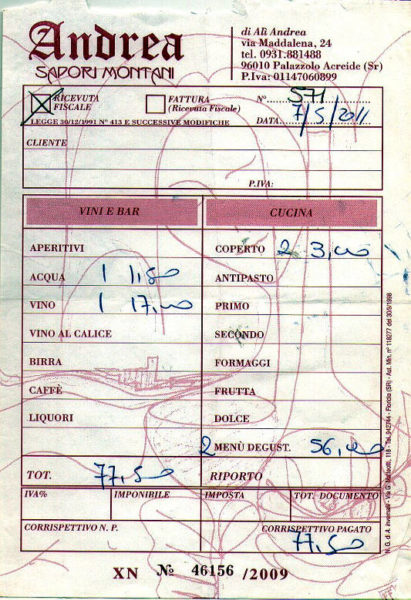 Andrea
SAPORI MONTANI
di Alì Andrea
via Maddalena, 24
tel. 0931.881488
96010 Palazzolo Acreide (Sr)
P.Iva: 01147060899
X RICEVUTA FISCALE
FATTURA (Ricevuta Fiscale)
N° 571
LEGGE 30/12/1991 N° 413 E SUCCESSIVE MODIFICHE
DATA 7/5/2011
CLIENTE
P.IVA:
VINI E BAR CUCINA
APERITIVI COPERTO 2 3,00
ACQUA 1 1,50 ANTIPASTO
VINO 1 17,00 PRIMO
VINO AL CALICE SECONDO
BIRRA FORMAGGI
CAFFÈ FRUTTA
LIQUORI DOLCE
2 MENÙ DEGUST. 56,00
TOT. 77,50 RIPORTO
IVA% IMPONIBILE IMPOSTA TOT. DOCUMENTO
CORRISPETTIVO N. P. CORRISPETTIVO PAGATO
77,50
XN № 46156 /2009